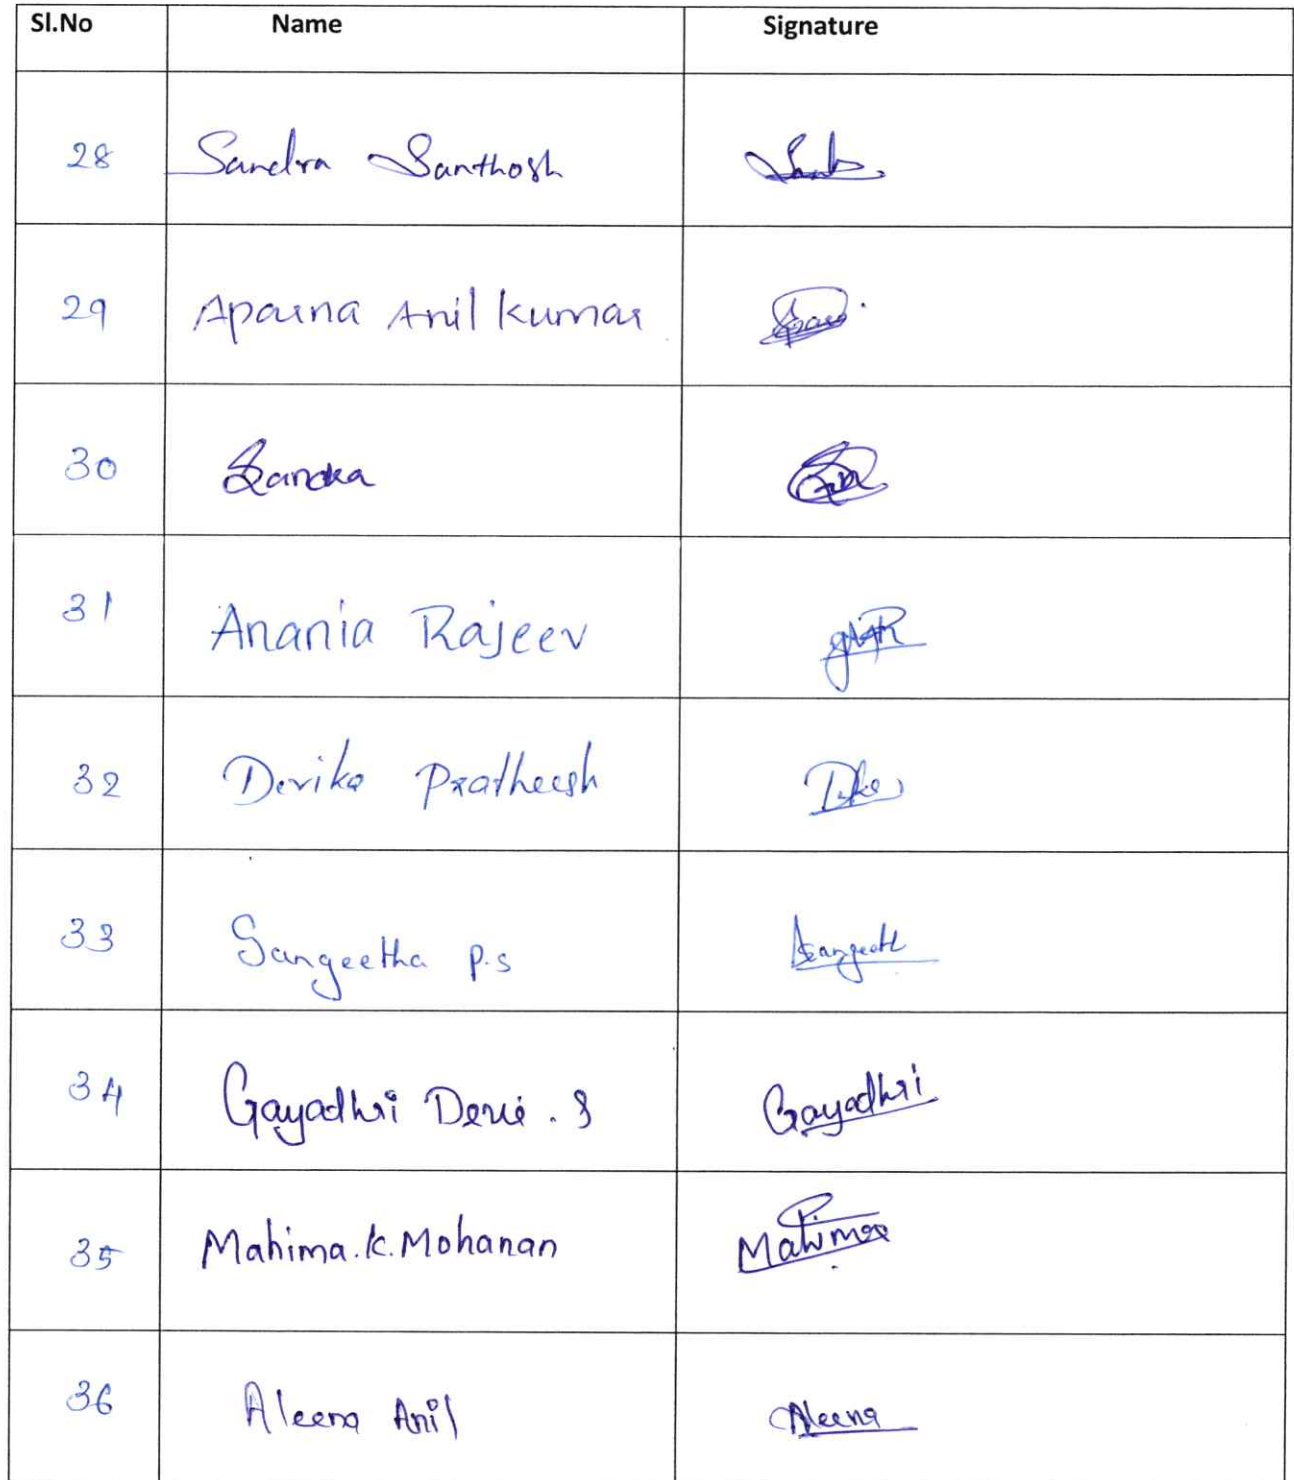 Sl.No Name Signature
28 Sandra Santhosh
29 Aparna Anil Kumar
30 Sandra
31 Anania Rajeev
32 Devika Pratheesh
33 Sangeetha P.S
34 Gayadhri Devi . S Gayadhri
35 Mahima.K.Mohanan Mahima
36 Aleena Anil Aleena